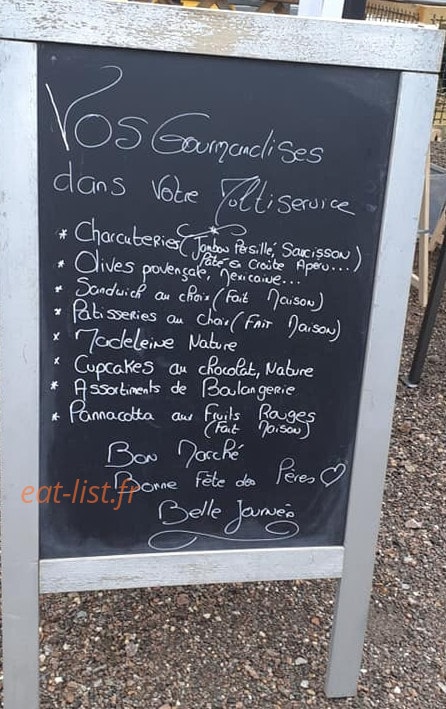 Vos Gourmandises
dans Votre Multiservice
* Charcuteries (Jambon Persillé, Saucisson)
Pâté en Croûte Apéro...)
* Olives provençale, Mexicaine...
* Sandwich au choix (Fait Maison)
* Patisseries au choix (Fait Maison)
* Madeleine Nature
* Cupcakes au chocolat, Nature
* Assortiments de Boulangerie
* Pannacotta aux Fruits Rouges
(Fait Maison)
Bon Marché
Bonne Fête des Pères ♡
Belle Journée
eat-list.fr